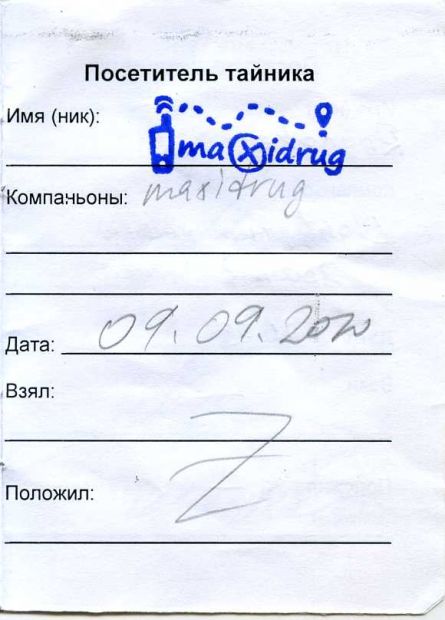 Посетитель тайника
Имя (ник): maxidrug
Компаньоны: maxidrug
Дата: 09.09.2010
Взял:
Z
Положил: